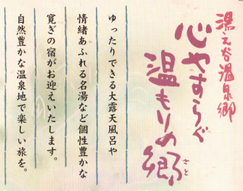 湯之谷温泉郷
心やすらぐ
温もりの郷
さと
ゆったりできる大露天風呂や
情緒あふれる名湯など個性豊かな
寛ぎの宿がお迎えいたします。
自然豊かな温泉地で楽しい旅を。